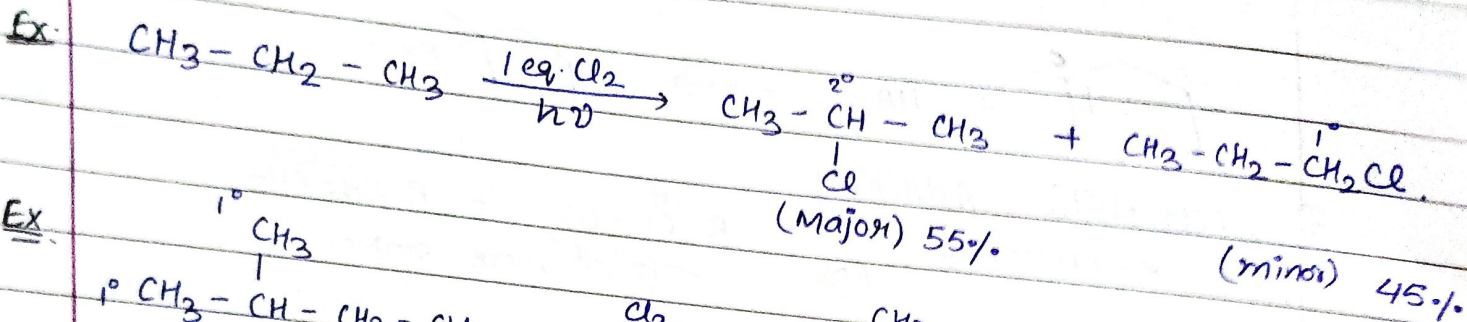 Ex. CH3 - CH2 - CH3 1 eq. Cl2 hν → CH3 - CH - CH3 + CH3 - CH2 - CH2Cl.
2° 1°
Cl
(Major) 55% (minor) 45%
Ex. 1° CH3
1° CH3 - CH - CH2 - Cl2